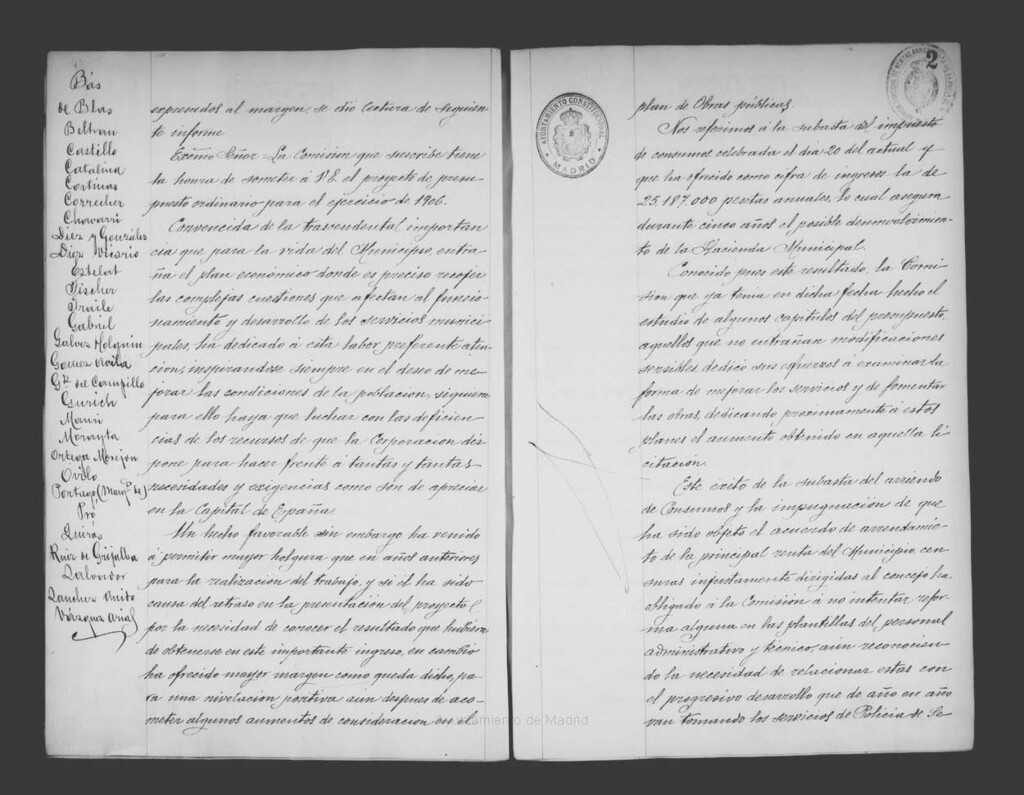 Bás
de Blas
Beltrán
Castillo
Catalina
Cortinas
Corredier
Chavarri
Diez y González
Diez Vicario
Estelat
Fischer
Fraile
Gabriel
Galvez Holguin
Gomez Avila
Gª del Campillo
Gurich
Mauri
Morayta
Ortega Morejon
Ovilo
Portago, (Marqs de)
Pro
Quirós
Ruiz de Grijalba
Salvador
Sanchez Anito
Vazquez Arias
expresados al margen, se dio lectura de siguien-
te informe
Excmo Señor =La Comision que suscribe tiene
la honra de someter á V.E. el proyecto de presu-
puesto ordinario para el ejercicio de 1906.
Convencida de la trascendental importan
cia que para la vida del Municipio, entra-
ña el plan económico donde es preciso recojer
las complejas cuestiones que afectan al funcio-
namiento y desarrollo de los servicios munici-
pales, ha dedicado á esta labor preferente aten-
cion, inspirandose siempre en el deseo de me-
jorar las condiciones de la poblacion, siquiera
para ello haya que luchar con las deficien-
cias de los recursos de que la Corporacion dis-
pone para hacer frente á tantas y tantas
necesidades y exigencias como son de apreciar
en la Capital de España.
Un hecho favorable sin embargo ha venido
á permitir mayor holgura que en años anteriores
para la realización del trabajo, y si él ha sido
causa del retraso en la presentación del proyecto (
por la necesidad de conocer el resultado que hubiera
de obtenerse en este importante ingreso, en cambio
ha ofrecido mayor margen como queda dicho, pa-
ra una nivelacion positiva aun despues de aco-
meter algunos aumentos de consideracion en el
AYUNTAMIENTO CONSTITUCIONAL
MADRID
2
plan de Obras públicas.
Nos referimos á la subasta del impuesto
de consumos, celebrada el dia 20 del actual y
que ha ofrecido como cifra de ingresos la de
25.187.000 pesetas anuales, lo cual asegura
durante cinco años el posible desenvolvimien-
to de la Hacienda Municipal.
Conocido pues este resultado, la Comi-
sion que ya tenia en dicha fecha hecho el
estudio de algunos capitulos del presupuesto,
aquellos que no entrañan modificaciones
sensibles, dedicó sus esfuerzos á examinar la
forma de mejorar los servicios y de fomentar
las obras, dedicando proximamente á estos
planes el aumento obtenido en aquella li
citación.
Este exito de la subasta del arriendo
de Consumos y la impugnacion de que
ha sido objeto el acuerdo de arrendamien-
to de la principal renta del Municipio, cen-
suras injustamente dirigidas al concejo, ha
obligado á la Comisión á no intentar refor-
ma alguna en las plantillas del personal
administrativo y técnico, aún reconocien-
do la necesidad de relacionar estas con
el progresivo desarrollo que de año en año
van tomando los servicios de Policia de Se
Ayuntamiento de Madrid